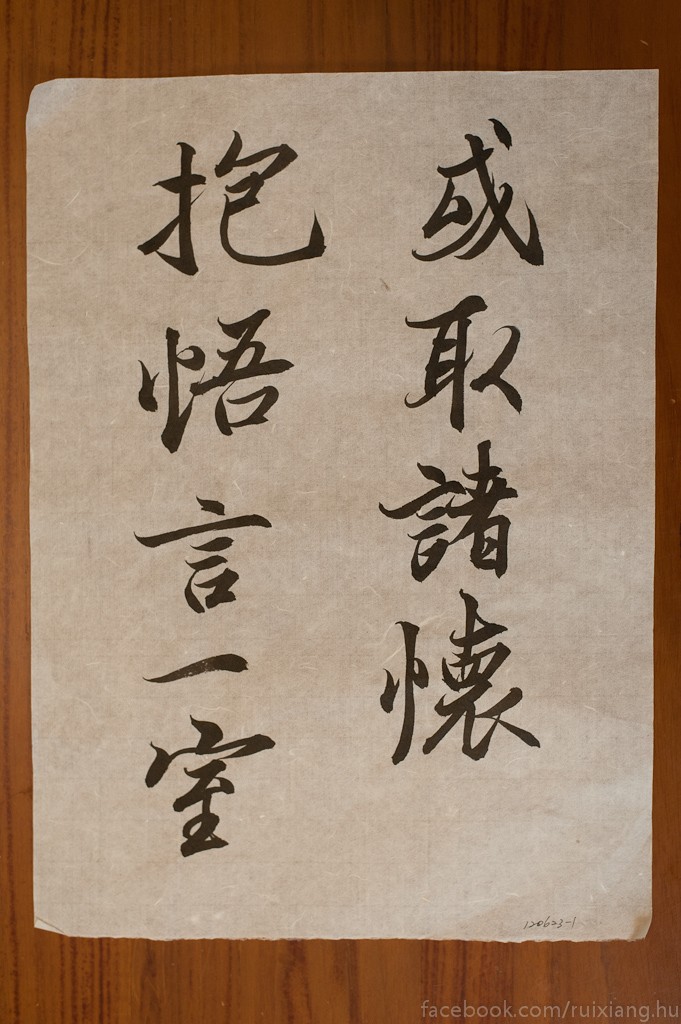 或取諸懷
抱悟言一室
120623-1
facebook.com/ruixiang.hu